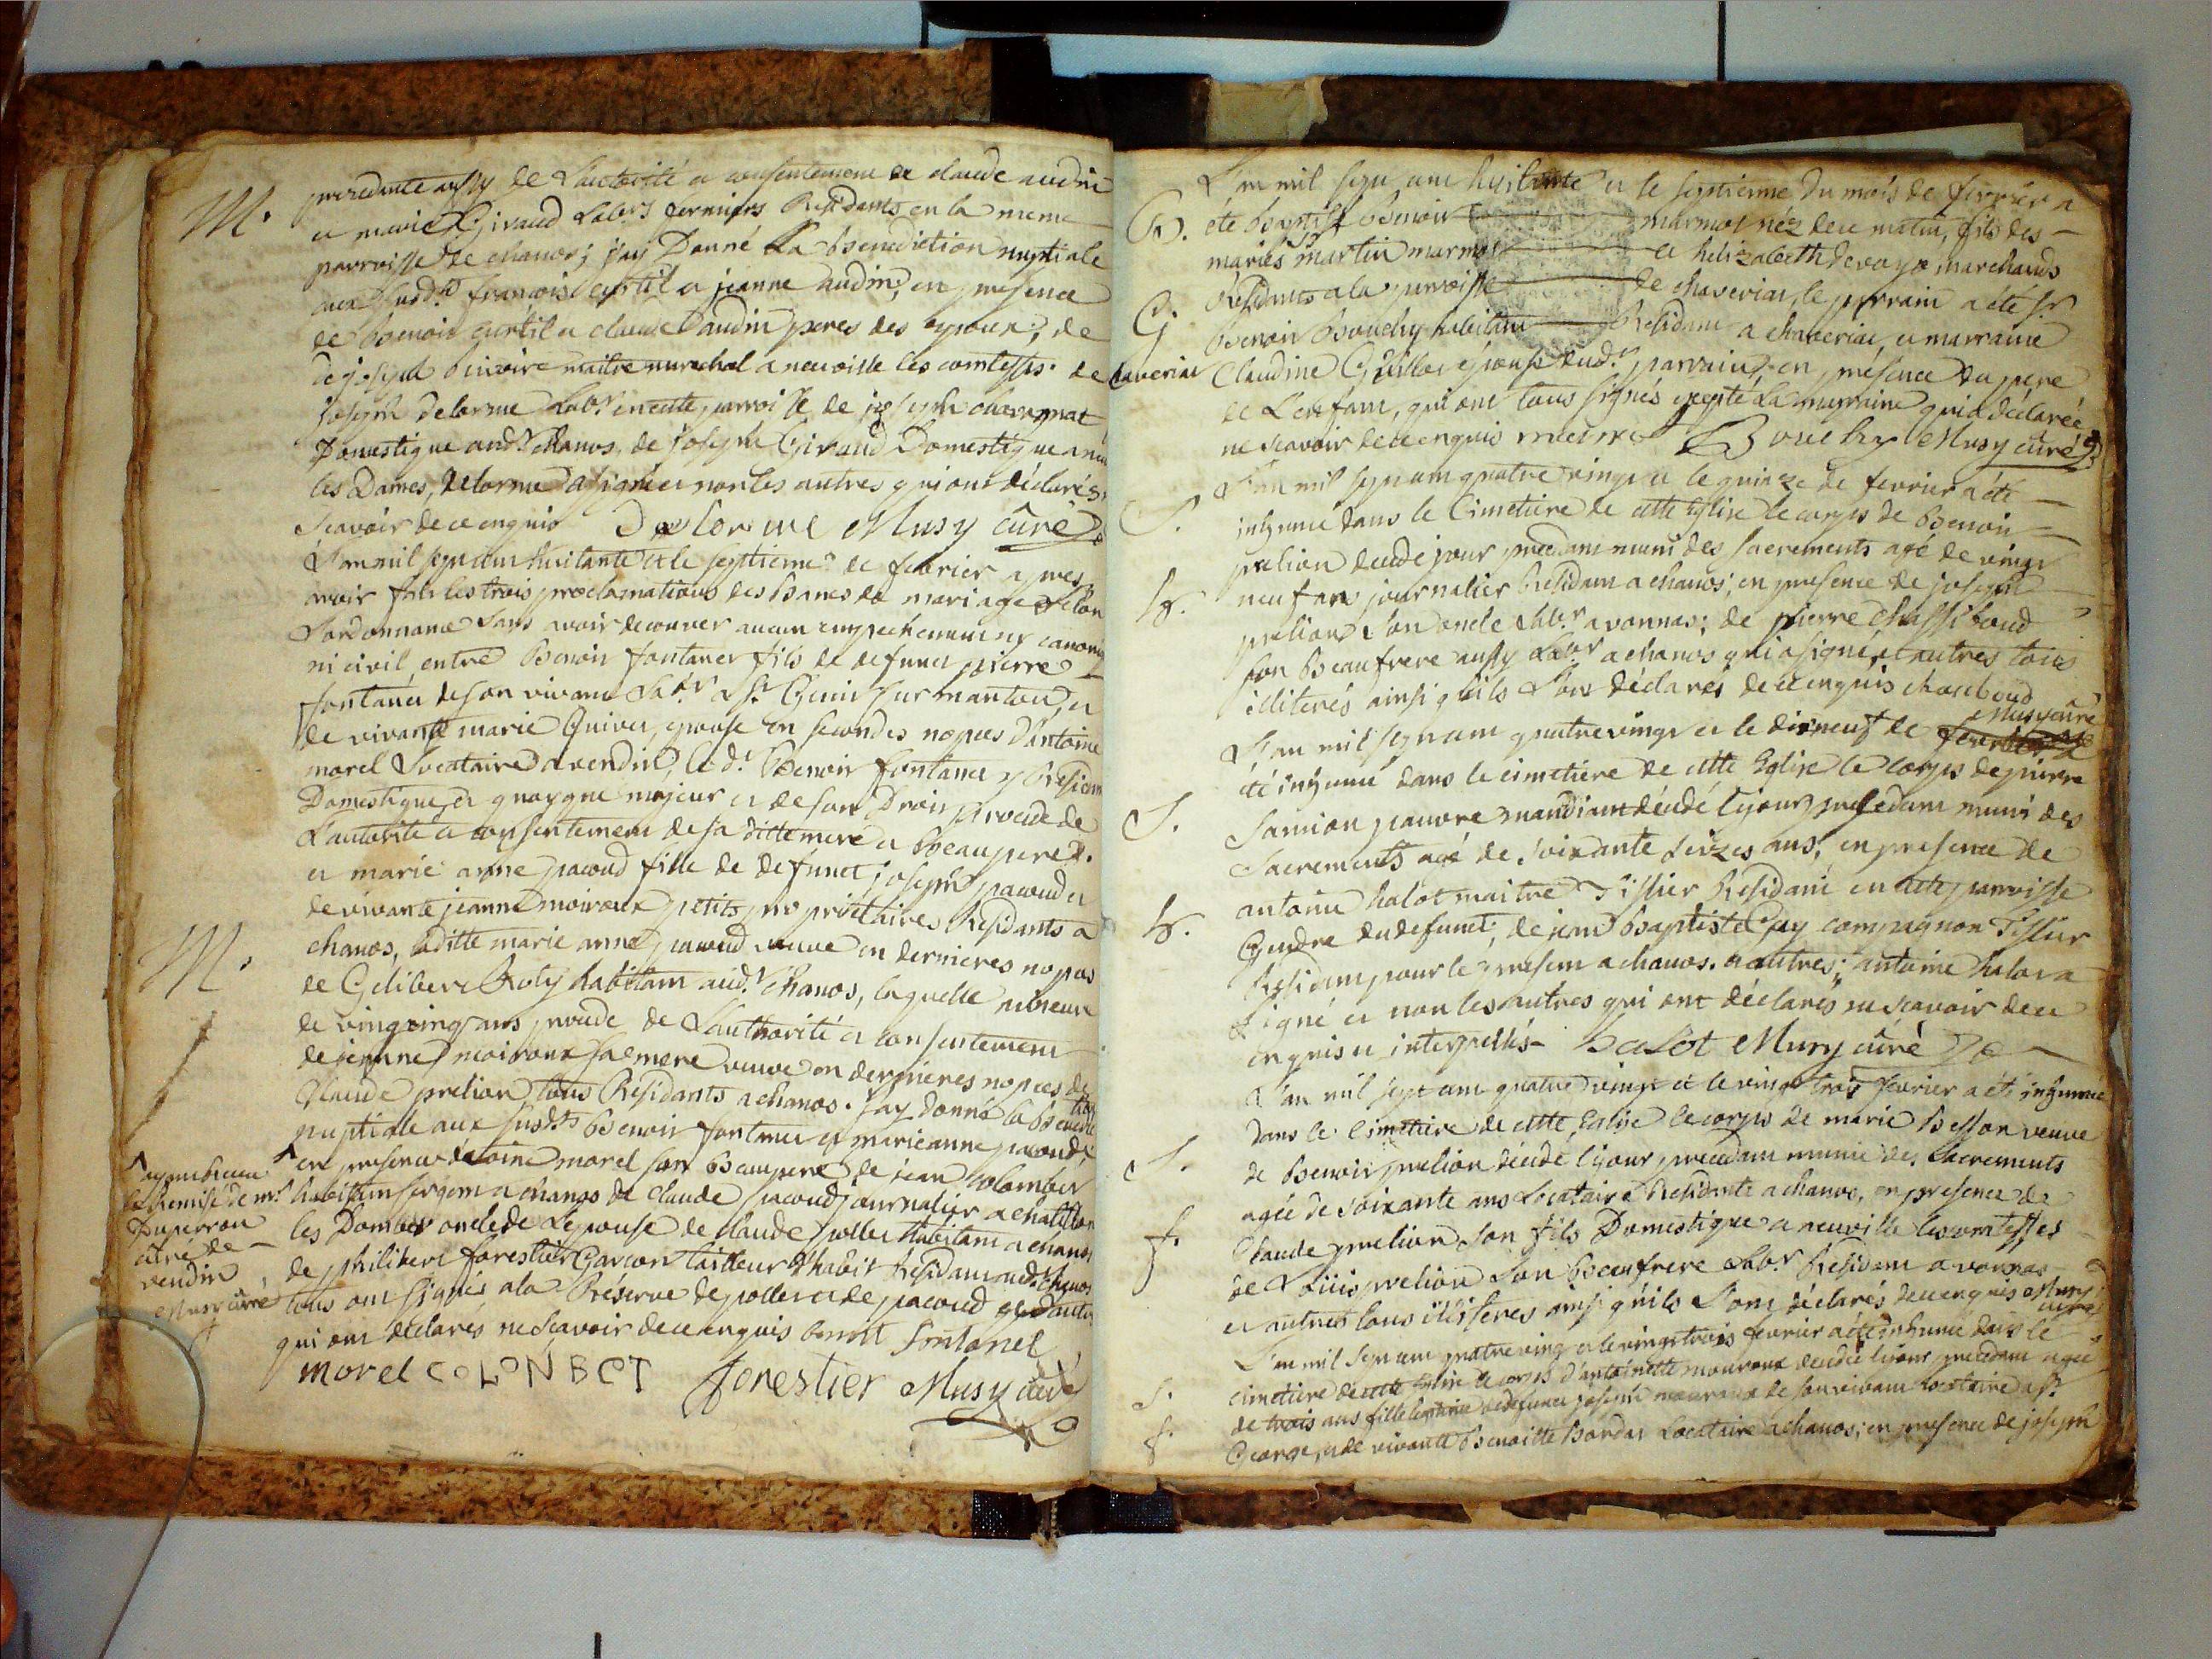 M.
procedante aussy de L'autorité et consentement de claude audin
et marie Giraud Lab.rs fermiers Residants en la meme
parroisse de chanos; j'ay Donné La Benediction nuptiale
aux susd.ts francois curtil et jeanne audin, en presence
de Benoit curtil et claude audin peres des epoux; de
de joseph maitre marechal a neuville les comtesses. de
joseph delorme Lab.r en cette parroisse de joseph
Domestique aud.t chanos, de joseph Giraud Domestique a
les Dames, delorme a signé et non les autres qui ont déclarés
scavoir de ce enquis Delorme Musy curé
L'an mil sept cent huitante et le septieme de fevrier apres
avoir fait les trois proclamations des Bancs de mariage selon
L'ordonnance sans avoir decouver aucun empechement ny canonique
ni civil entre Benoit fontanet fils de defunct pierre
fontanet de son vivant Lab.r a S.t Genis sur manton, et
de vivante marie Guivet, epouse en secondes nopces d'antoine
morel Locataire a vendin, le d.t Benoit fontanet y Resident
Domestique, et quoyque majeur et de son Droit procede de
L'autorité et consentement de sa ditte mere et Beaupere.
et marie anne pacoud fille de defunct joseph pacoud et
de vivante jeanne moiroux petits proprietaires Residants a
M.
chanos, laditte marie anne pacoud veuve en dernieres nopces
de Gelibert habitant aud.t chanos, laquelle mineure
de vingt cinq ans procede de L'authorité et consentement
de jeanne moiroux sa mere veuve en dernieres nopces de
Claude prelion tous Residants a chanos. j'ay donné la Benediction
nuptiale aux susd.ts Benoit fontanet et marie anne pacoud,
en presence d'antoine morel son Beaupere de jean colombet
habitant a chanos de claude pacoud journalier a chatillon
les Dombes oncle de L'epouse de claude pollet habitant a chanos
de philibert forestier Garcon tailleur d'habit Residant aud.t chanos
tous ont signés a la Réserve de pollet et de pacoud et d'autres
qui ont déclarés ne scavoir de ce enquis benoit fontanel
morel COLONBET forestier Musy curé
la Remise de m.r
Duperron
curé de
vendin
Musy curé
L'an mil sept cent huitante et le septieme du mois de fevrier a
B. été Baptisé Benoit marmot néz de ce matin, fils des
mariés martin marmot et helizabeth devaye marchands
Residants a la parroisse de chaveriat, le parrain a été s.r
G. Benoit Bouchy habitant Residant a chaveriat, et marraine
chaveriat Claudine Guillot epouse dud.t parrain, en présence du pere
de L'enfant, qui ont tous signés excepté La marraine qui a déclarée
ne scavoir de ce enquis marmot Bouchy Musy curé
L'an mil sept cent quatre vingt et le quinze de fevrier a été
S. inhumé dans le Cimetiere de cette Eglise le corps de Benoit
prelion decedé jour precedant muni des sacrements agé de vingt
h. neuf ans journalier Residant a chanos; en presence de joseph
prelion son oncle Lab.r a vonnas; de pierre chassiboud
son Beaufrere aussy Lab.r a chanos qui a signé, et autres tous
illiterés ainsi qu'ils L'ont déclarés de ce enquis chasiboud
Musy curé
L'an mil sept cent quatre vingt et le dixneuf de fevrier a
été inhumé dans le cimetiere de cette Eglise le corps de pierre
S. Samion pauvre mandiant décédé le jour precedant muni des
Sacrements agé de soixante seizes ans, en presence de
antoine halot maitre Tissier Residant en cette parroisse
h. Gendre du defunct, de jean Baptiste Gay compagnon Tissier
Residant pour le present a chanos. et autres; antoine halot a
signé et non les autres qui ont déclarés ne scavoir de ce
enquis et interpellés halot Musy curé
L'an mil sept cent quatre vingt et le vingt trois fevrier a été inhumée
dans le cimetiere de cette Eglise le corps de marie Besson veuve
S. de Benoit prelion décédé le jour precedant munie des Sacrements
agée de soixante ans Locataire Residante a chanos, en presence de
f. Claude prelion son fils Domestique a neuville les comtesses
de Louis prelion son Beaufrere Lab.r Resident a vonnas
et autres tous illiteres ainsi qu'ils L'ont déclarés de ce enquis Musy
curé
L'an mil sept cent quatre vingt et le vingt trois fevrier a été inhumé dans le
S. cimetiere de cette Eglise le corps d'antoinette mouroux decedée le jour precedant agée
de trois ans fille legitime de defunct joseph mouroux de son vivant locataire a S.t
f. George, et de vivante Benoitte Bordat Locataire a chanos; en presence de joseph